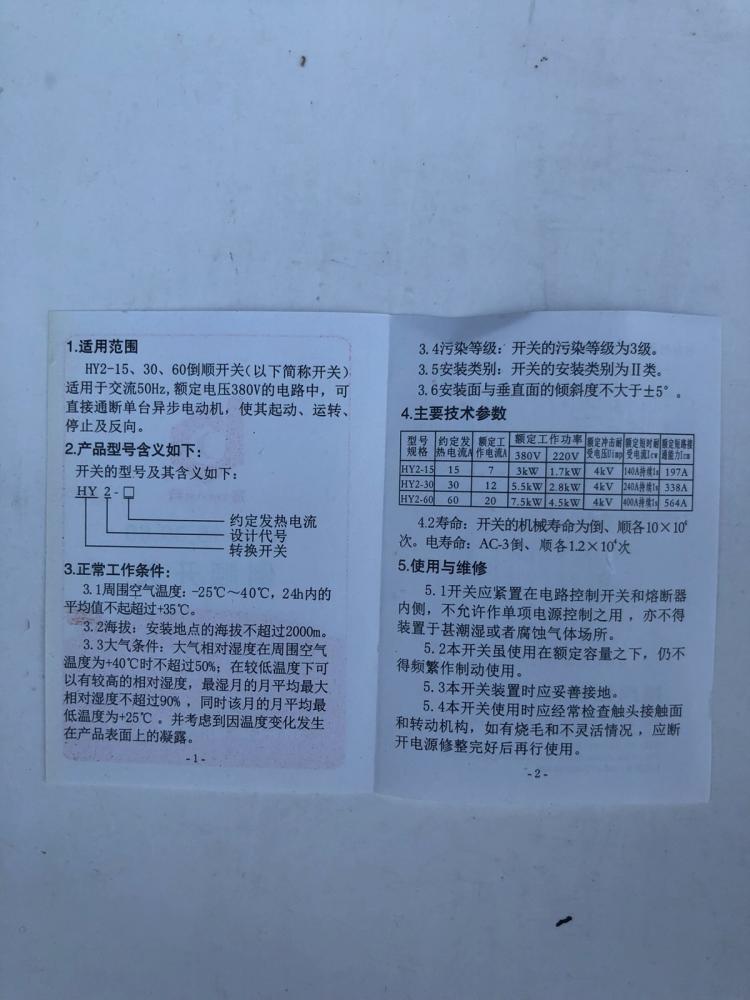 1.适用范围
HY2-15、30、60倒顺开关(以下简称开关)
适用于交流50Hz,额定电压380V的电路中，可
直接通断单台异步电动机，使其起动、运转、
停止及反向。
2.产品型号含义如下：
开关的型号及其含义如下：
HY 2-□
约定发热电流
设计代号
转换开关
3.正常工作条件：
3.1周围空气温度：-25℃～40℃，24h内的
平均值不起超过+35℃。
3.2海拔：安装地点的海拔不超过2000m。
3.3大气条件：大气相对湿度在周围空气
温度为+40℃时不超过50%；在较低温度下可
以有较高的相对湿度，最湿月的月平均最大
相对湿度不超过90%，同时该月的月平均最
低温度为+25℃。并考虑到因温度变化发生
在产品表面上的凝露。
-1-
3.4污染等级：开关的污染等级为3级。
3.5安装类别：开关的安装类别为Ⅱ类。
3.6安装面与垂直面的倾斜度不大于±5°。
4.主要技术参数
型号规格 约定发热电流A 额定工作电流A 额定工作功率 380V 220V 额定冲击耐受电压Uimp 额定短时耐受电流Icw 额定短路接通能力Icm
HY2-15 15 7 3kW 1.7kW 4kV 140A持续1s 197A
HY2-30 30 12 5.5kW 2.8kW 4kV 240A持续1s 338A
HY2-60 60 20 7.5kW 4.5kW 4kV 400A持续1s 564A
4.2寿命：开关的机械寿命为倒、顺各10×10⁴
次。电寿命：AC-3倒、顺各1.2×10⁴次
5.使用与维修
5.1开关应紧置在电路控制开关和熔断器
内侧，不允许作单项电源控制之用，亦不得
装置于甚潮湿或者腐蚀气体场所。
5.2本开关虽使用在额定容量之下，仍不
得频繁作制动使用。
5.3本开关装置时应妥善接地。
5.4本开关使用时应经常检查触头接触面
和转动机构，如有烧毛和不灵活情况，应断
开电源修整完好后再行使用。
-2-